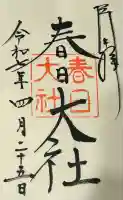 奉拝
春日大社
春日
大社
令和七年四月二十五日